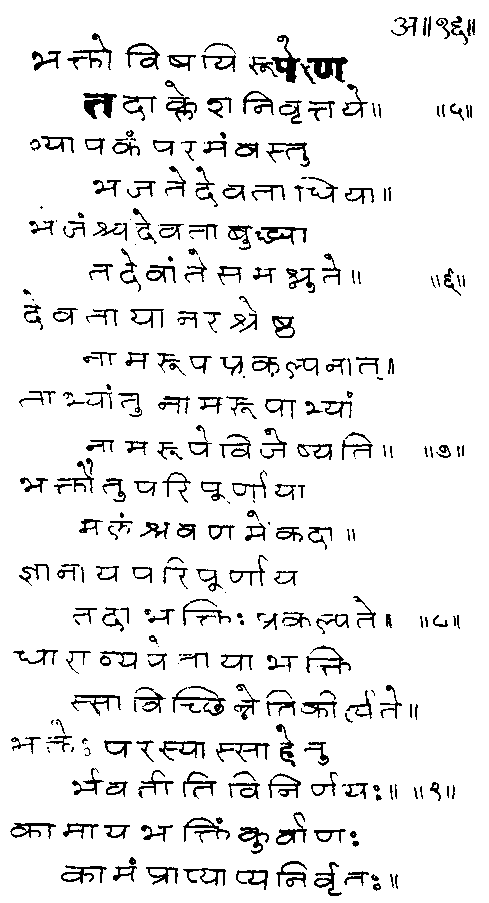 अ॥१६॥
भक्तो विषयिरूपेण
तदाक्लेशनिवृत्तये॥ ॥५॥
व्यापकं परमं वस्तु
भजते देवताधिया॥
भजंश्च देवताबुद्ध्या
तदेवांते समश्नुते॥ ॥६॥
देवताया नरश्रेष्ठ
नामरूपप्रकल्पनात्॥
ताभ्यांतु नामरूपाभ्यां
नामरूपे विजेष्यति॥ ॥७॥
भक्तौ तु परिपूर्णाया
मलं श्रवणमेकदा॥
ज्ञानाय परिपूर्णाय
तदा भक्तिः प्रकल्पते॥ ॥८॥
धाराव्यपेताया भक्ति
स्साविच्छिन्नेति कीर्त्यते॥
भक्तेः परस्यास्सा हेतु
र्भवतीति विनिर्णयः॥ ॥९॥
कामाय भक्तिं कुर्वाणः
कामं प्राप्याप्यनिर्वृतः॥